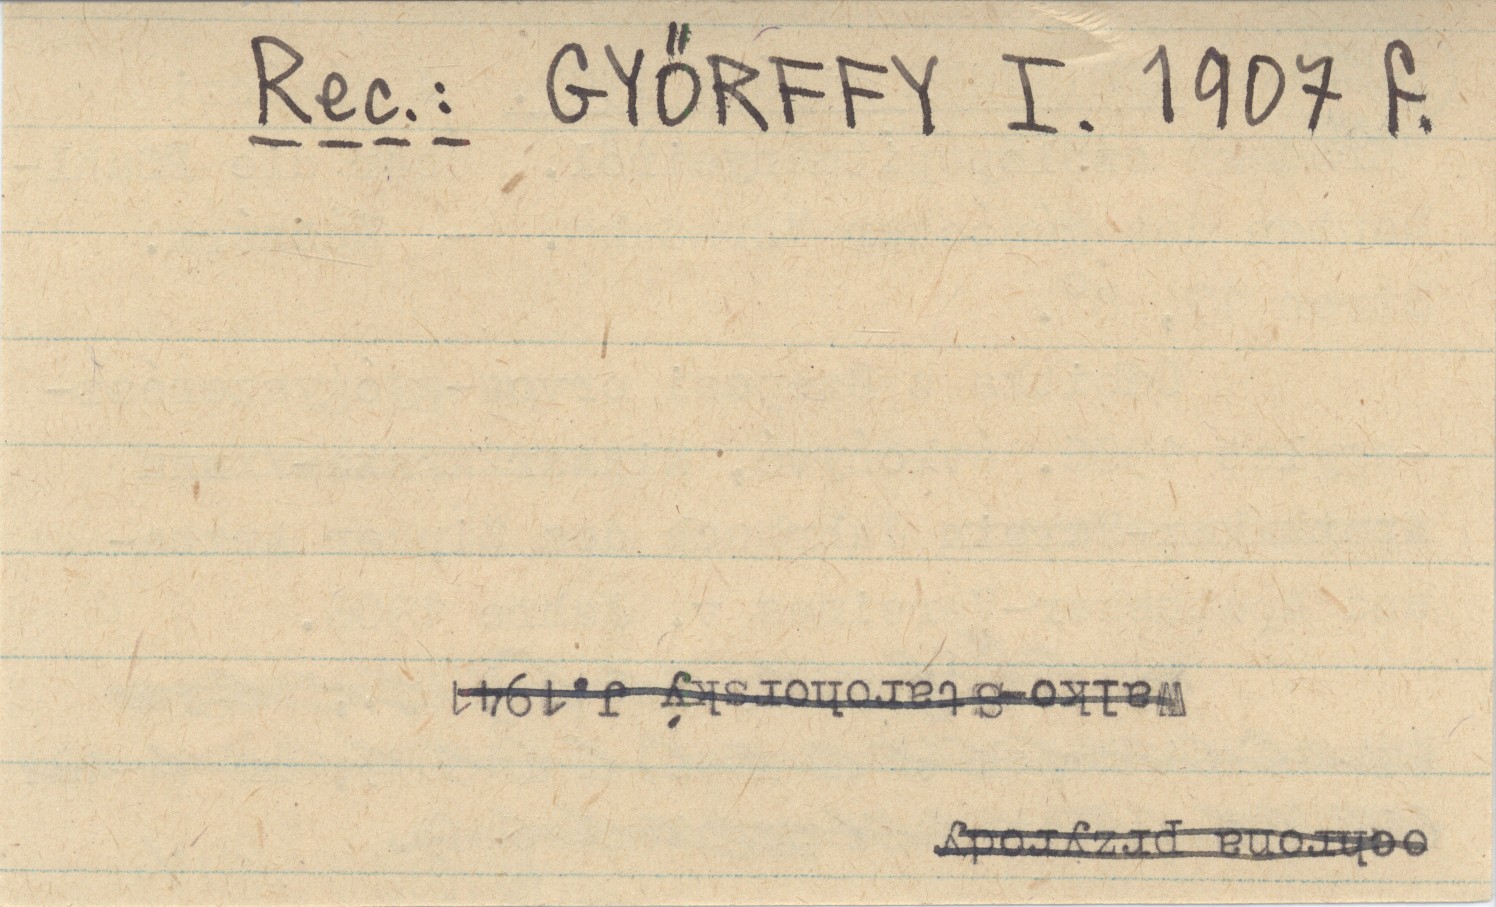 Rec.: GYŐRFFY I. 1907 f.
Walko-Starohorský J. 1941
ochrona przyrody